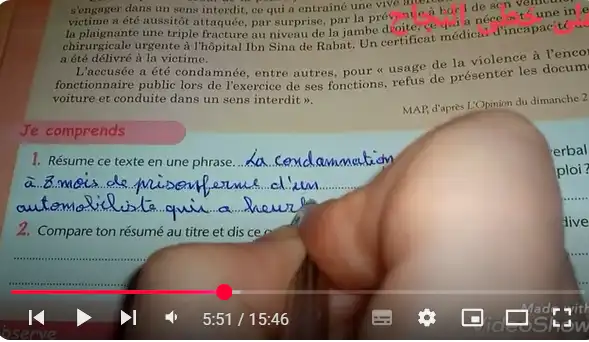 s'engager dans un sens interdit, ce qui a entraîné une vive
victime a été aussitôt attaquée, par surprise, par la à bord de
la plaignante une triple fracture au niveau de la jambe une
chirurgicale urgente à l'hôpital Ibn Sina de Rabat. Un certificat médical
a été délivré à la victime.
L'accusée a été condamnée, entre autres, pour « usage de la violence à
fonctionnaire public lors de l'exercice de ses fonctions, refus de présenter les
voiture et conduite dans un sens interdit ».
على خطى النجاح
MAP, d'après L'Opinion du dimanche 2
Je comprends
1. Résume ce texte en une phrase. La condamnation
à 3 mois de prison ferme d'un
automobiliste qui a
2. Compare ton résumé au titre et dis ce
5:51 / 15:46
Made with
VideoShow